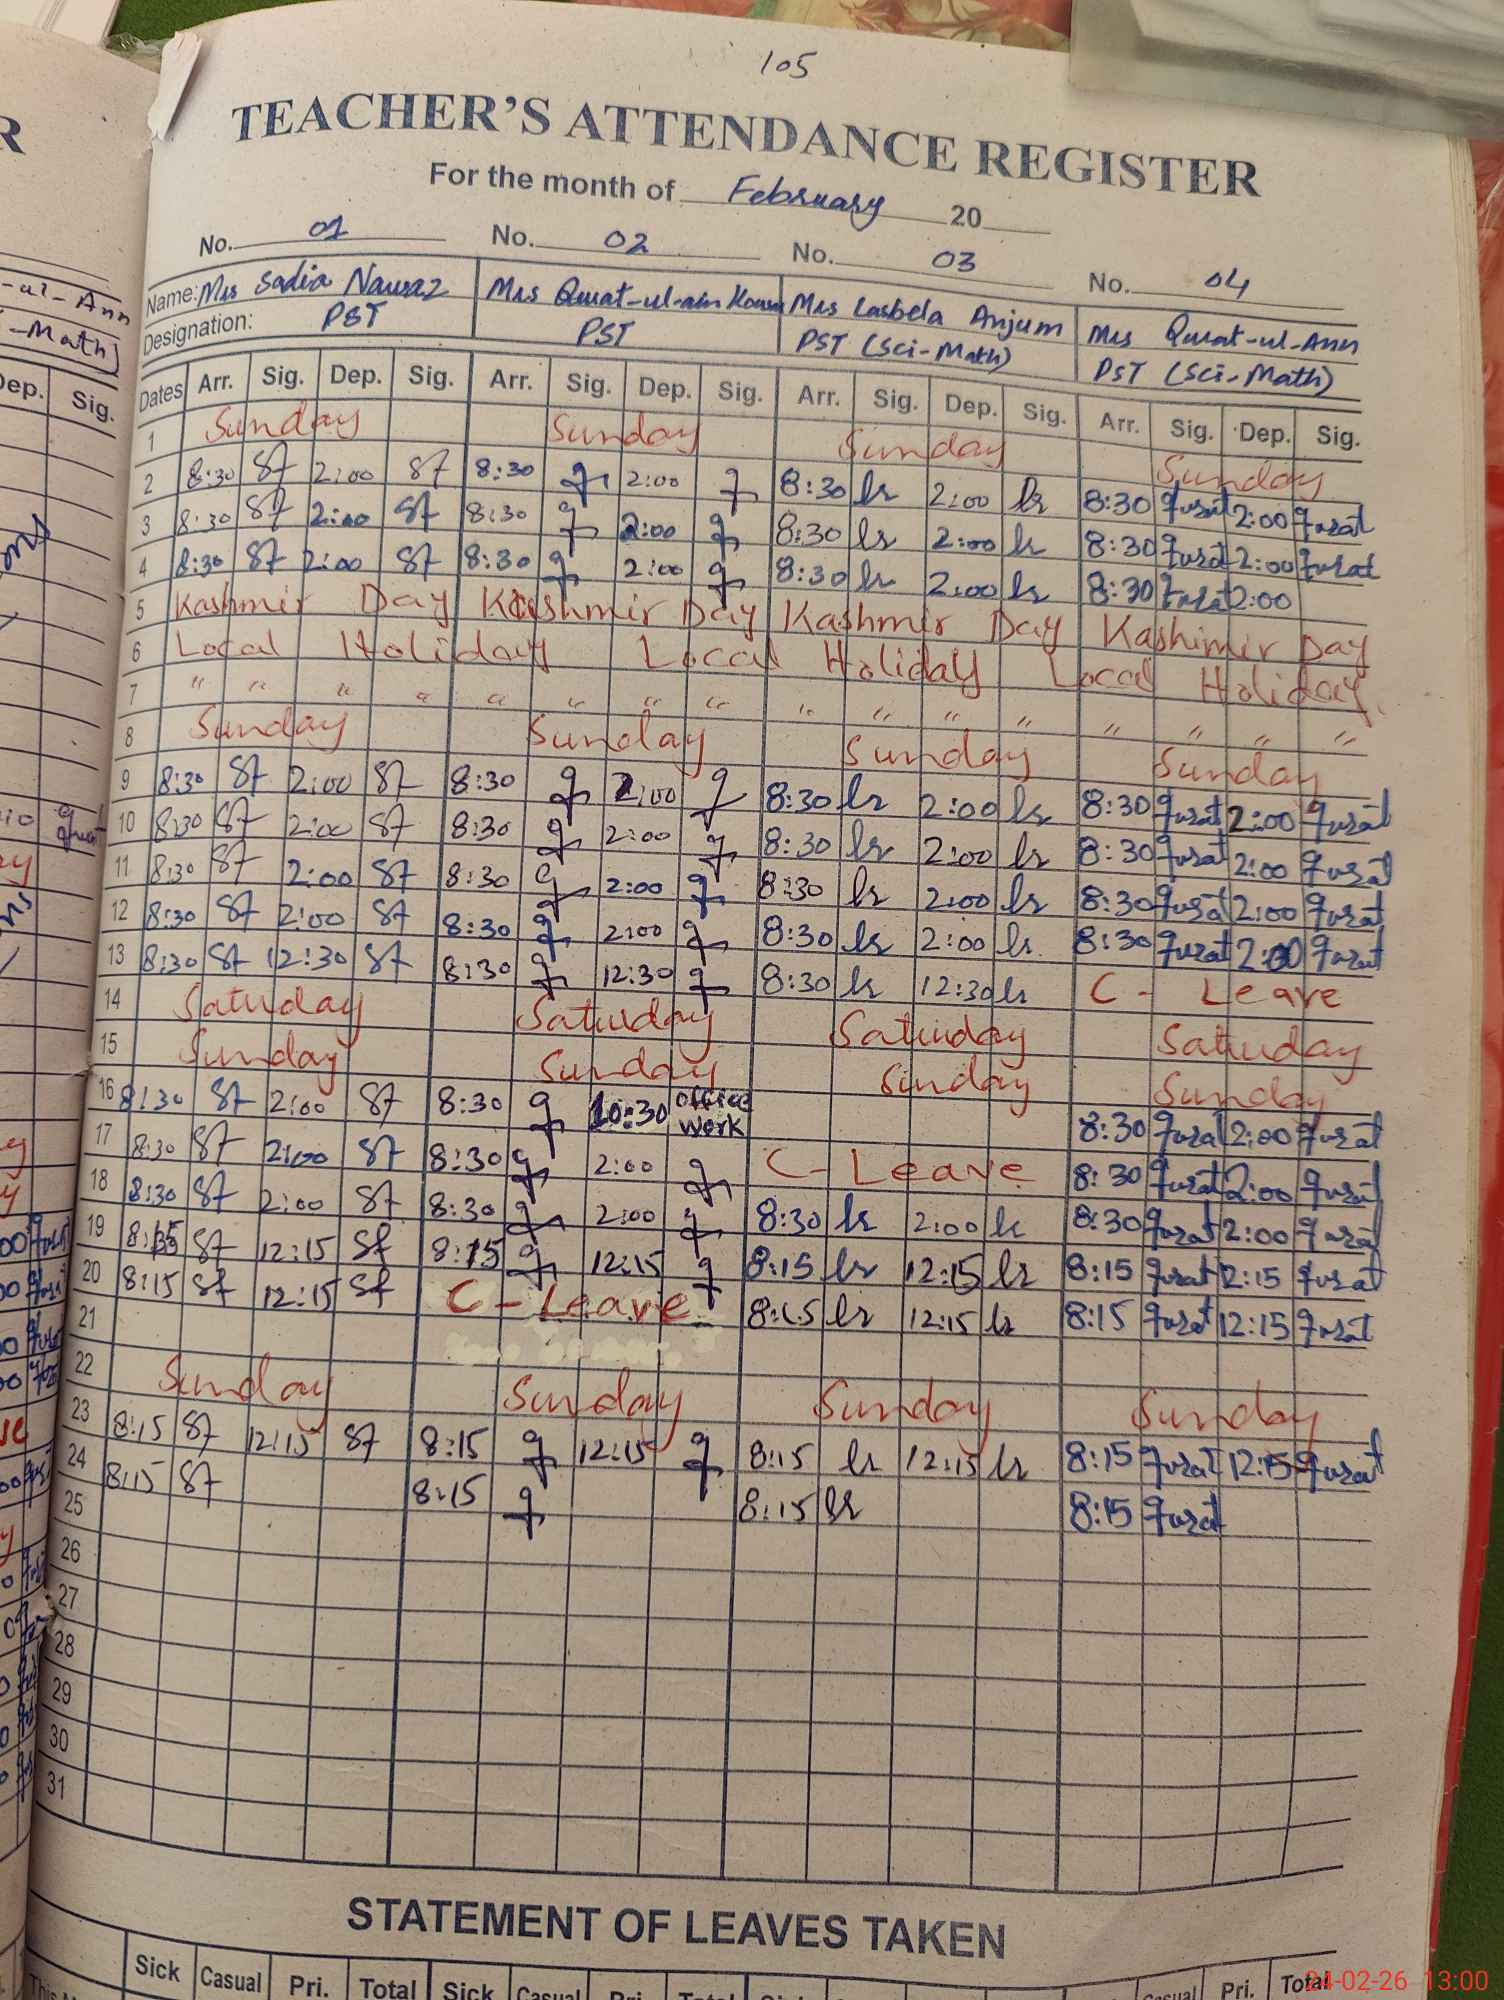 105
TEACHER'S ATTENDANCE REGISTER
For the month of February 20
No. 01 No. 02 No. 03 No. 04
Name: Mrs Sadia Nawaz Mrs Qurat-ul-ain Mrs Lasbela Anjum Mrs Qurat-ul-Ann
Designation: PST PST PST (Sci-Math) PST (Sci-Math)
Dates Arr. Sig. Dep. Sig. Arr. Sig. Dep. Sig. Arr. Sig. Dep. Sig. Arr. Sig. Dep. Sig.
1 Sunday Sunday Sunday Sunday
2 8:30 Sf 2:00 Sf 8:30 q 2:00 q 8:30 ls 2:00 ls 8:30 qurat 2:00 qurat
3 8:30 Sf 2:00 Sf 8:30 q 2:00 q 8:30 ls 2:00 ls 8:30 qurat 2:00 qurat
4 8:30 Sf 2:00 Sf 8:30 q 2:00 q 8:30 ls 2:00 ls 8:30 qurat 2:00
5 Kashmir Day Kashmir Day Kashmir Day Kashimir Day
6 Local Holiday Local Holiday Local Holiday
7 " " " " " " " " " " " " " " " "
8 Sunday Sunday Sunday Sunday
9 8:30 Sf 2:00 Sf 8:30 q 2:00 q 8:30 ls 2:00 ls 8:30 qurat 2:00 qurat
10 8:30 Sf 2:00 Sf 8:30 q 2:00 q 8:30 ls 2:00 ls 8:30 qurat 2:00 qurat
11 8:30 Sf 2:00 Sf 8:30 q 2:00 q 8:30 ls 2:00 ls 8:30 qurat 2:00 qurat
12 8:30 Sf 2:00 Sf 8:30 q 2:00 q 8:30 ls 2:00 ls 8:30 qurat 2:00 qurat
13 8:30 Sf 12:30 Sf 8:30 q 12:30 q 8:30 ls 12:30 ls C - Leave
14 Satuday Satuday Satuday Satuday
15 Sunday Sunday Sunday Sunday
16 8:30 Sf 2:00 Sf 8:30 q 10:30 office work 8:30 qurat 2:00 qurat
17 8:30 Sf 2:00 Sf 8:30 q 2:00 q C - Leave 8:30 qurat 2:00 qurat
18 8:30 Sf 2:00 Sf 8:30 q 2:00 q 8:30 ls 2:00 ls 8:30 qurat 2:00 qurat
19 Sf 12:15 Sf 8:15 q 12:15 q 8:15 ls 12:15 ls 8:15 qurat 12:15 qurat
20 8:15 Sf 12:15 Sf C - Leave 8:15 ls 12:15 ls 8:15 qurat 12:15 qurat
21
22 Sunday Sunday Sunday Sunday
23 8:15 Sf 12:15 Sf 8:15 q 12:15 q 8:15 ls 12:15 ls 8:15 qurat 12:15 qurat
24 8:15 Sf 8:15 q 8:15 ls 8:15 qurat
25
26
27
28
29
30
31
STATEMENT OF LEAVES TAKEN
Sick Casual Pri. Total Sick Casual Pri. Total Casual Pri. Total
24-02-26 13:00